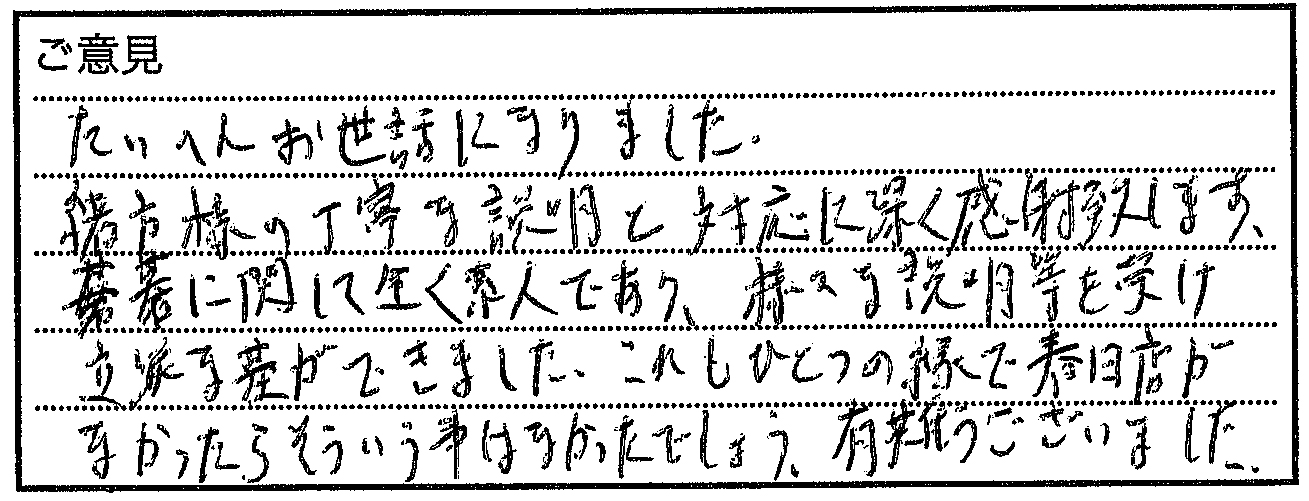 ご意見
たいへんお世話になりました。
緒方様の丁寧な説明と対応に深く感謝致します。
墓に関して全く素人であり、様々な説明等を受け
立派な墓ができました。これもひとつの縁で春日店が
なかったらそういう事はなかったでしょう。有難うございました。